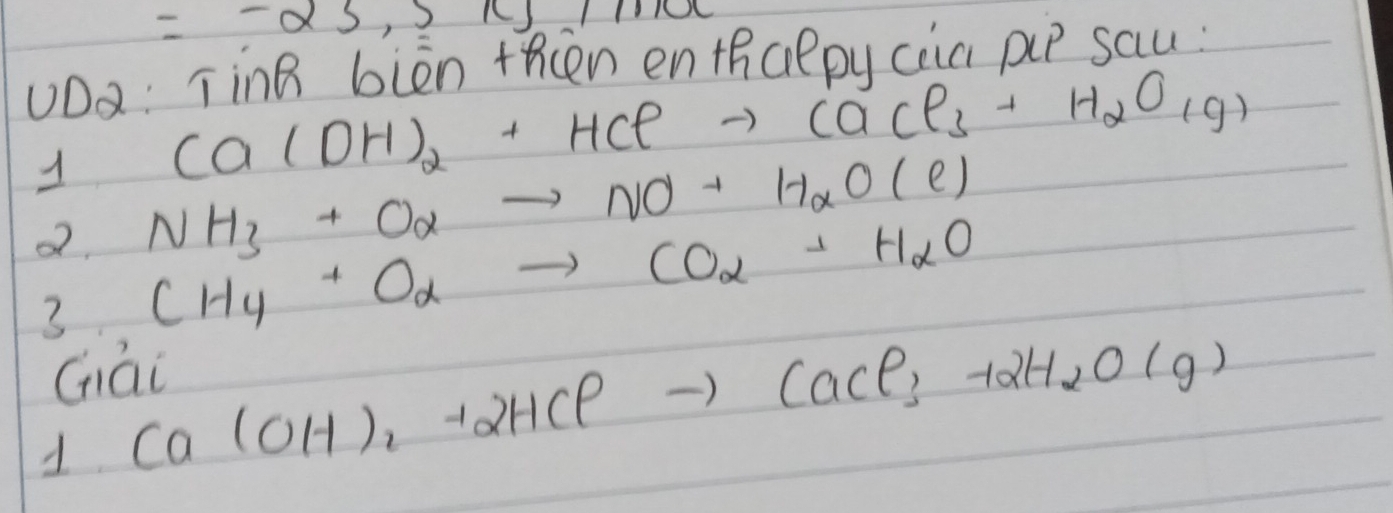 = -23,5 KJ/mol
VD2: Tính biến thiên enthalpy của pư sau:
1 Ca(OH)₂ + HCl → CaCl₃ + H₂O(g)
2. NH₃ + O₂ → NO + H₂O(l)
3. CH₄ + O₂ → CO₂ + H₂O
Giải
1. Ca(OH)₂ +2HCl → CaCl₃ +2H₂O(g)